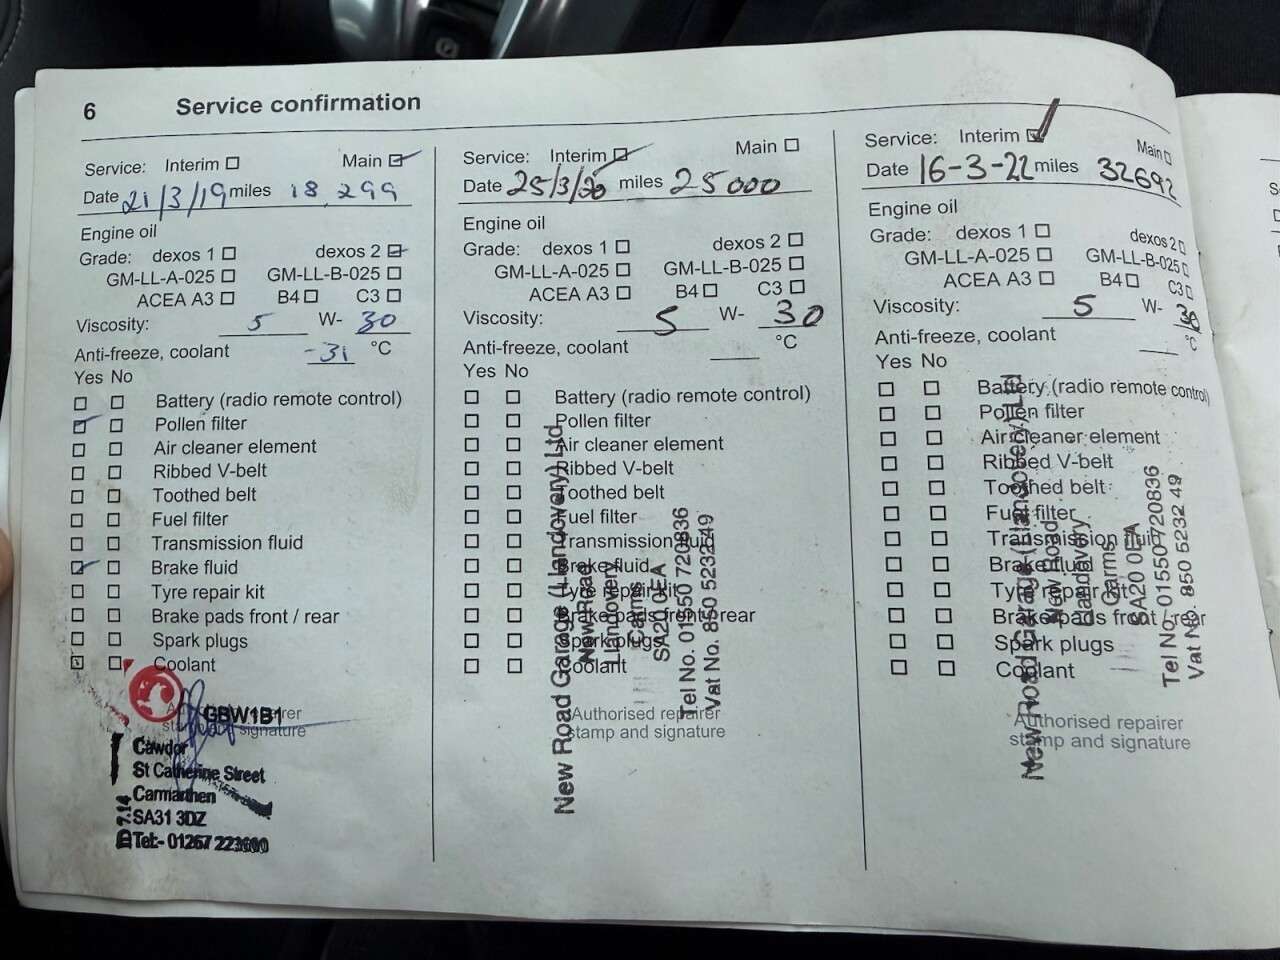 6 Service confirmation
Service: Interim Main
Date 21/3/19 miles 18,299
Engine oil
Grade: dexos 1 dexos 2
GM-LL-A-025 GM-LL-B-025
ACEA A3 B4 C3
Viscosity: 5 W- 30
Anti-freeze, coolant -31 °C
Yes No
Battery (radio remote control)
Pollen filter
Air cleaner element
Ribbed V-belt
Toothed belt
Fuel filter
Transmission fluid
Brake fluid
Tyre repair kit
Brake pads front / rear
Spark plugs
Coolant
Authorised repairer
stamp and signature
GBW1B1
Cawdor
St Catherine Street
Carmarthen
SA31 3DZ
Tel:- 01267
Service: Interim Main
Date 25/3/20 miles 25000
Engine oil
Grade: dexos 1 dexos 2
GM-LL-A-025 GM-LL-B-025
ACEA A3 B4 C3
Viscosity: 5 W- 30
Anti-freeze, coolant °C
Yes No
Battery (radio remote control)
Pollen filter
Air cleaner element
Ribbed V-belt
Toothed belt
Fuel filter
Transmission fluid
Brake fluid
Tyre repair kit
Brake pads front / rear
Spark plugs
Coolant
Authorised repairer
stamp and signature
New Road Garage (Llandovery) Ltd
New Road
Llandovery
Carms
SA20 0EA
Tel No. 01550 720836
Vat No. 850 5232 49
Service: Interim Main
Date 16-3-22 miles 32692
Engine oil
Grade: dexos 1 dexos 2
GM-LL-A-025 GM-LL-B-025
ACEA A3 B4 C3
Viscosity: 5 W- 30
Anti-freeze, coolant °C
Yes No
Battery (radio remote control)
Pollen filter
Air cleaner element
Ribbed V-belt
Toothed belt
Fuel filter
Transmission fluid
Brake fluid
Tyre repair kit
Brake pads front / rear
Spark plugs
Coolant
Authorised repairer
stamp and signature
New Road Garage (Llandovery) Ltd
New Road
Llandovery
Carms
SA20 0EA
Tel No. 01550 720836
Vat No. 850 5232 49